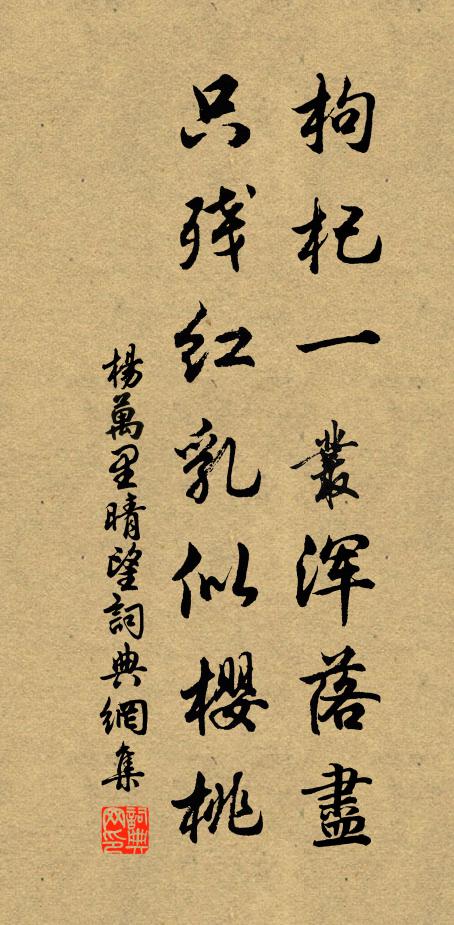 枸杞一叢浑落盡
只残红乳似櫻桃
楊萬里晴望詞典網集
詞典网印